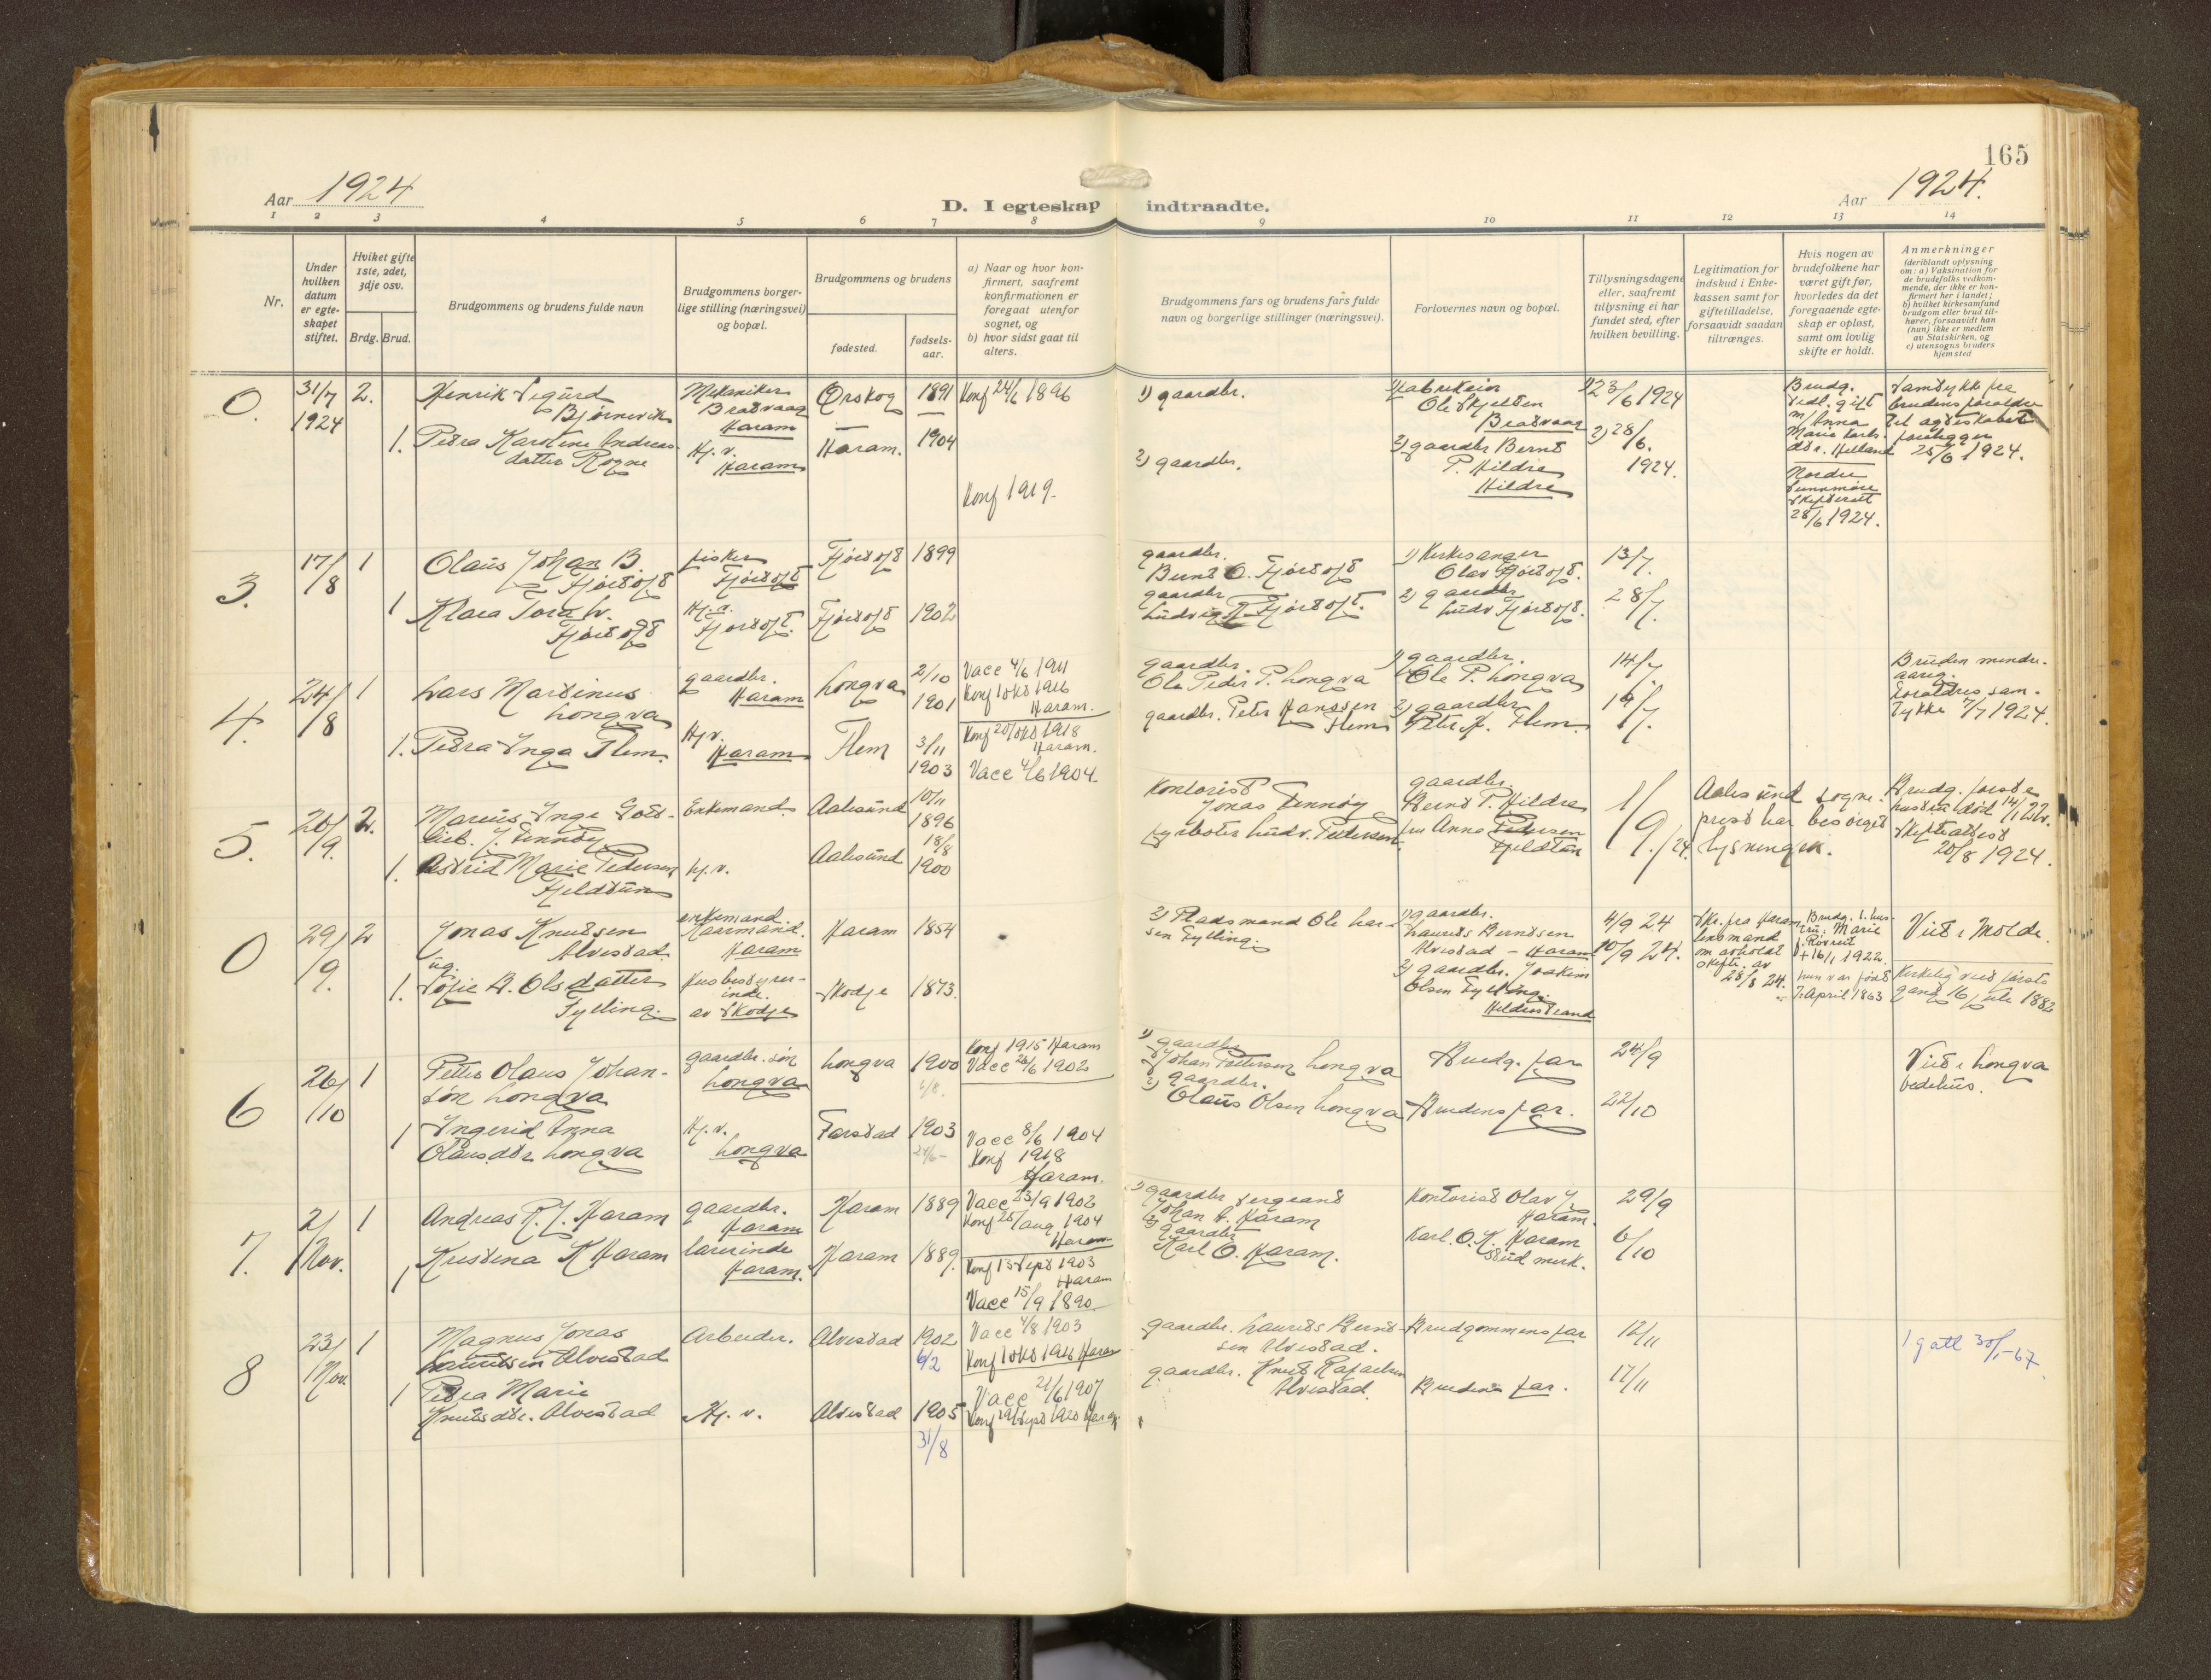 165
Aar 1924
D. I egteskap indtraadte.
Aar 1924.
1 2 3 4 5 6 7 8 9 10 11 12 13 14
Nr.
Under hvilken datum er egte-skapet stiftet.
Hviket gifte 1ste, 2det, 3dje osv.
Brdg. Brud.
Brudgommens og brudens fulde navn
Brudgommens borger-lige stilling (næringsvei) og bopæl.
Brudgommens og brudens
fødested.
fødsels-aar.
a) Naar og hvor kon-firmert, saafremt konfirmationen er foregaat utenfor sognet, og
b) hvor sidst gaat til alters.
Brudgommens fars og brudens fars fulde navn og borgerlige stillinger (næringsvei).
Forlovernes navn og bopæl.
Tillysningsdagene eller, saafremt tillysning ei har fundet sted, efter hvilken bevilling.
Legitimation for indskud i Enke-kassen samt for giftetilladelse, forsaavidt saadan tiltrænges.
Hvis nogen av brudefolkene har været gift før, hvorledes da det foregaaende egte-skap er opløst, samt om lovlig skifte er holdt.
Anmerkninger
(deriblandt oplysning om: a) Vaksination for de brudefolks vedkom-mende, der ikke er kon-firmert her i landet; b) hvilket kirkesamfund brudgom eller brud til-hører, forsaavidt han (hun) ikke er medlem av Statskirken, og c) utensogns bruders hjemsted
0.
31/7 1924
2.
Henrik Sigurd
Bjørnevik
Mekaniker
Brattvaag
Haram
Ørskog
1891
Konf 24/6 1896
1) gaardbr.
Ole Skjelten
Brattvaag
1) 23/6 1924
Brudg.
tidl. gift
m/ Anna
Marie Karls-
dtr. Helland
Nordre
Sunnmøre
Skifterett
28/6 1924.
Samtykke fra
brudens foreldre
til ægteskabet
foreligger
25/6 1924.
1.
Petra Karoline Andreas-
datter Rogne
Hj. v.
Haram
Haram.
1904
Konf 1919.
2) gaardbr.
2) gaardbr Bernt
P. Hildre
Hildre
2) 28/6.
1924.
3.
17/8
1
Olaus Johan B.
Fjørtoft
fisker
Fjørtoft
Fjørtoft
1899
gaardbr.
Bernt O. Fjørtoft
1) Kirkesanger
Olav Fjørtoft.
13/7.
1
Klara Tora L.
Fjørtoft
Fjørtoft.
Fjørtoft
1902
gaardbr
Ludvig Fjørtoft.
2) gaardbr
Ludv Fjørtoft.
28/7.
4.
24/8
1
Lars Martinus
Longva
gaardbr.
Haram
Longva
2/10
1901
Vacc 4/6 1911
Konf 1 okt 1916
Haram.
gaardbr.
Ole Peder P. Longva
1) gaardbr.
Ole P. Longva
14/7
Bruden mindre-
aarig.
Forældres sam-
tykke 7/7 1924.
1.
Petra Inga Flem.
Hj. v.
Haram
Flem
3/11
1903
Konf 20/okt 1918
Haram.
Vacc 4/6 1904.
gaardbr. Peter Hanssen
Flem
2) gaardbr
Peter H. Flem.
14/7.
5.
20/9.
2.
Marius Inge Gott-
lieb. J. Finnøy
Enkemand.
Aalesund
10/11
1896
Kontorist
Jonas Finnøy
gaardbr
Bernt P. Hildre
1/9./24.
Aalesund sogne-
prest har besørget
lysningen.
Brudg. første
hustru død 14/1 22.
Skifteattest
20/8 1924.
1.
Astrid Marie Pedersen
Fjeldtun
hj. v.
Aalesund
18/8
1900
fyrbøter Ludv. Pettersen.
fru Anna Pedersen
Fjeldtun
0
29/9.
2
Jonas Knutsen
Alvestad
og
enkemand.
Kaarmand.
Haram
Haram
1854
1) gaardbr.
Laurits Berntsen
Alvestad - Haram
4/9 24
10/9 24.
Skr. fra Haram
lensmand
om avholdt
skifte av
28/8 24.
Brudg. 1. hus-
tru, Marie
+ 16/1 1922.
hun var født
7. April 1863
Viet i Molde.
Kirkelig viet første
gang 16 juli 1882
1.
Sofie B. Olsdatter
Fylling.
Husbestyrer-
inde.
av Skodje
Skodje
1873.
2) Pladsmand Ole Lar-
sen Fylling.
2) gaardbr. Joakim
Olsen Fylling.
Hildrestrand
6
26/10
1
Petter Olaus Johan-
søn Longva
gaardbr. søn
Longva
Longva
1900
6/8.
Konf 1915 Haram
Vacc 26/6 1902
1) gaardbr
Johan Pettersen Longva
Brudg. far
24/9
Viet i Longva
bedehus.
1
Ingerid Anna
Olausdtr Longva
Hj. v.
Longva
Farstad
1903
24/6-
Vacc 8/6 1904
Konf 1918
Haram.
2) gaardbr.
Olaus Olsen Longva
Brudens far.
22/10
7.
2/Nov.
1
Andreas R. J. Haram
gaardbr.
Haram
Haram
1889
Vacc 23/9 1902
Konf 28/aug 1904
Haram
1) gaardbr sergeant
Johan A. Haram
Kontorist Olav J.
Haram.
29/9
1
Kristina K Haram
lærerinde
Haram.
Haram
1889.
Konf 13 Sept 1903
Haram
Vacc 15/9 1890
2) gaardbr
Karl O. Haram.
Karl. O. K. Haram
stud merk.
6/10
8
23/Nov.
1
Magnus Jonas
Lauritsen Alvestad
Arbeider.
Alvestad
1902
6/2
Vacc 4/8 1903
Konf 1 okt 1916 Haram
gaardbr. Laurits Bernt-
sen Alvestad.
Brudgommens far
12/11
1 g att 30/1-67
1
Petra Marie
Knutsdtr. Alvestad
Hj. v.
Alvestad
1905
31/8
Vacc 21/6 1907
Konf 19/Sept 1920 Haram
gaardbr. Knut Rafaelsen
Alvestad.
Brudens far.
17/11